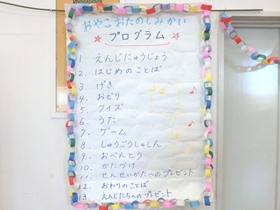 おやこおたのしみかい
プログラム
1. えんじにゅうじょう
2. はじめのことば
3. げき
4. おどり
5. クイズ
6. うた
7. ゲーム
8. しゅうごうしゃしん
9. おべんとう
10. かたづけ
11. せんせいがたへのプレゼント
12. おわりのことば
13. えんじたちへのプレゼント